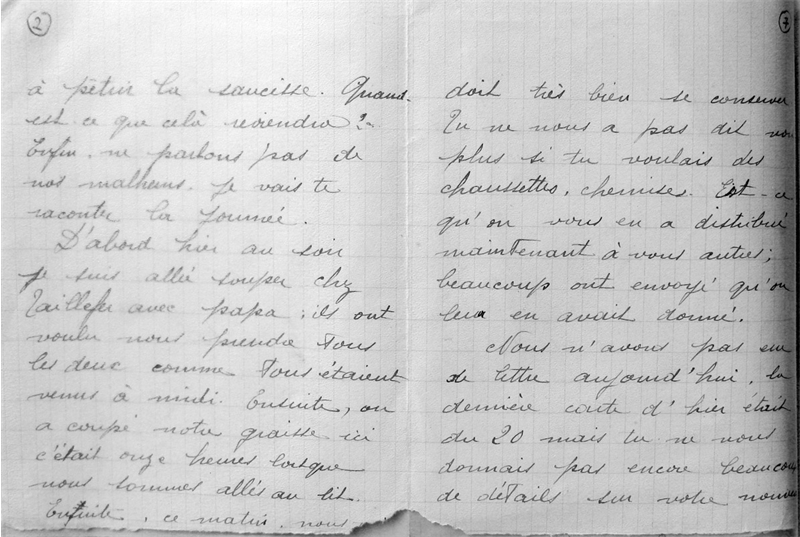 2
à pétrir la saucisse. Quand
est ce que celà reviendra ?
Enfin, ne parlons pas de
nos malheurs. Je vais te
raconter la journée.
D'abord hier au soir
je suis allé souper chez
Taillefer avec papa ; ils ont
voulu nous prendre tous
les deux comme tous étaient
venus à midi. Ensuite, on
a coupé notre graisse ici
c'était onze heures lorsque
nous sommes allés au lit.
Ensuite, ce matin, nous
7
doit très bien se conserver
Tu ne nous a pas dit non
plus si tu voulais des
chaussettes, chemises. Est-ce
qu'on vous en a distribué
maintenant à vous autres ;
beaucoup ont envoyé qu'on
leur en avait donné.
Nous n'avons pas eu
de lettre aujourd'hui, la
dernière carte d'hier était
du 20 mais tu ne nous
donnais pas encore beaucoup
de détails sur votre